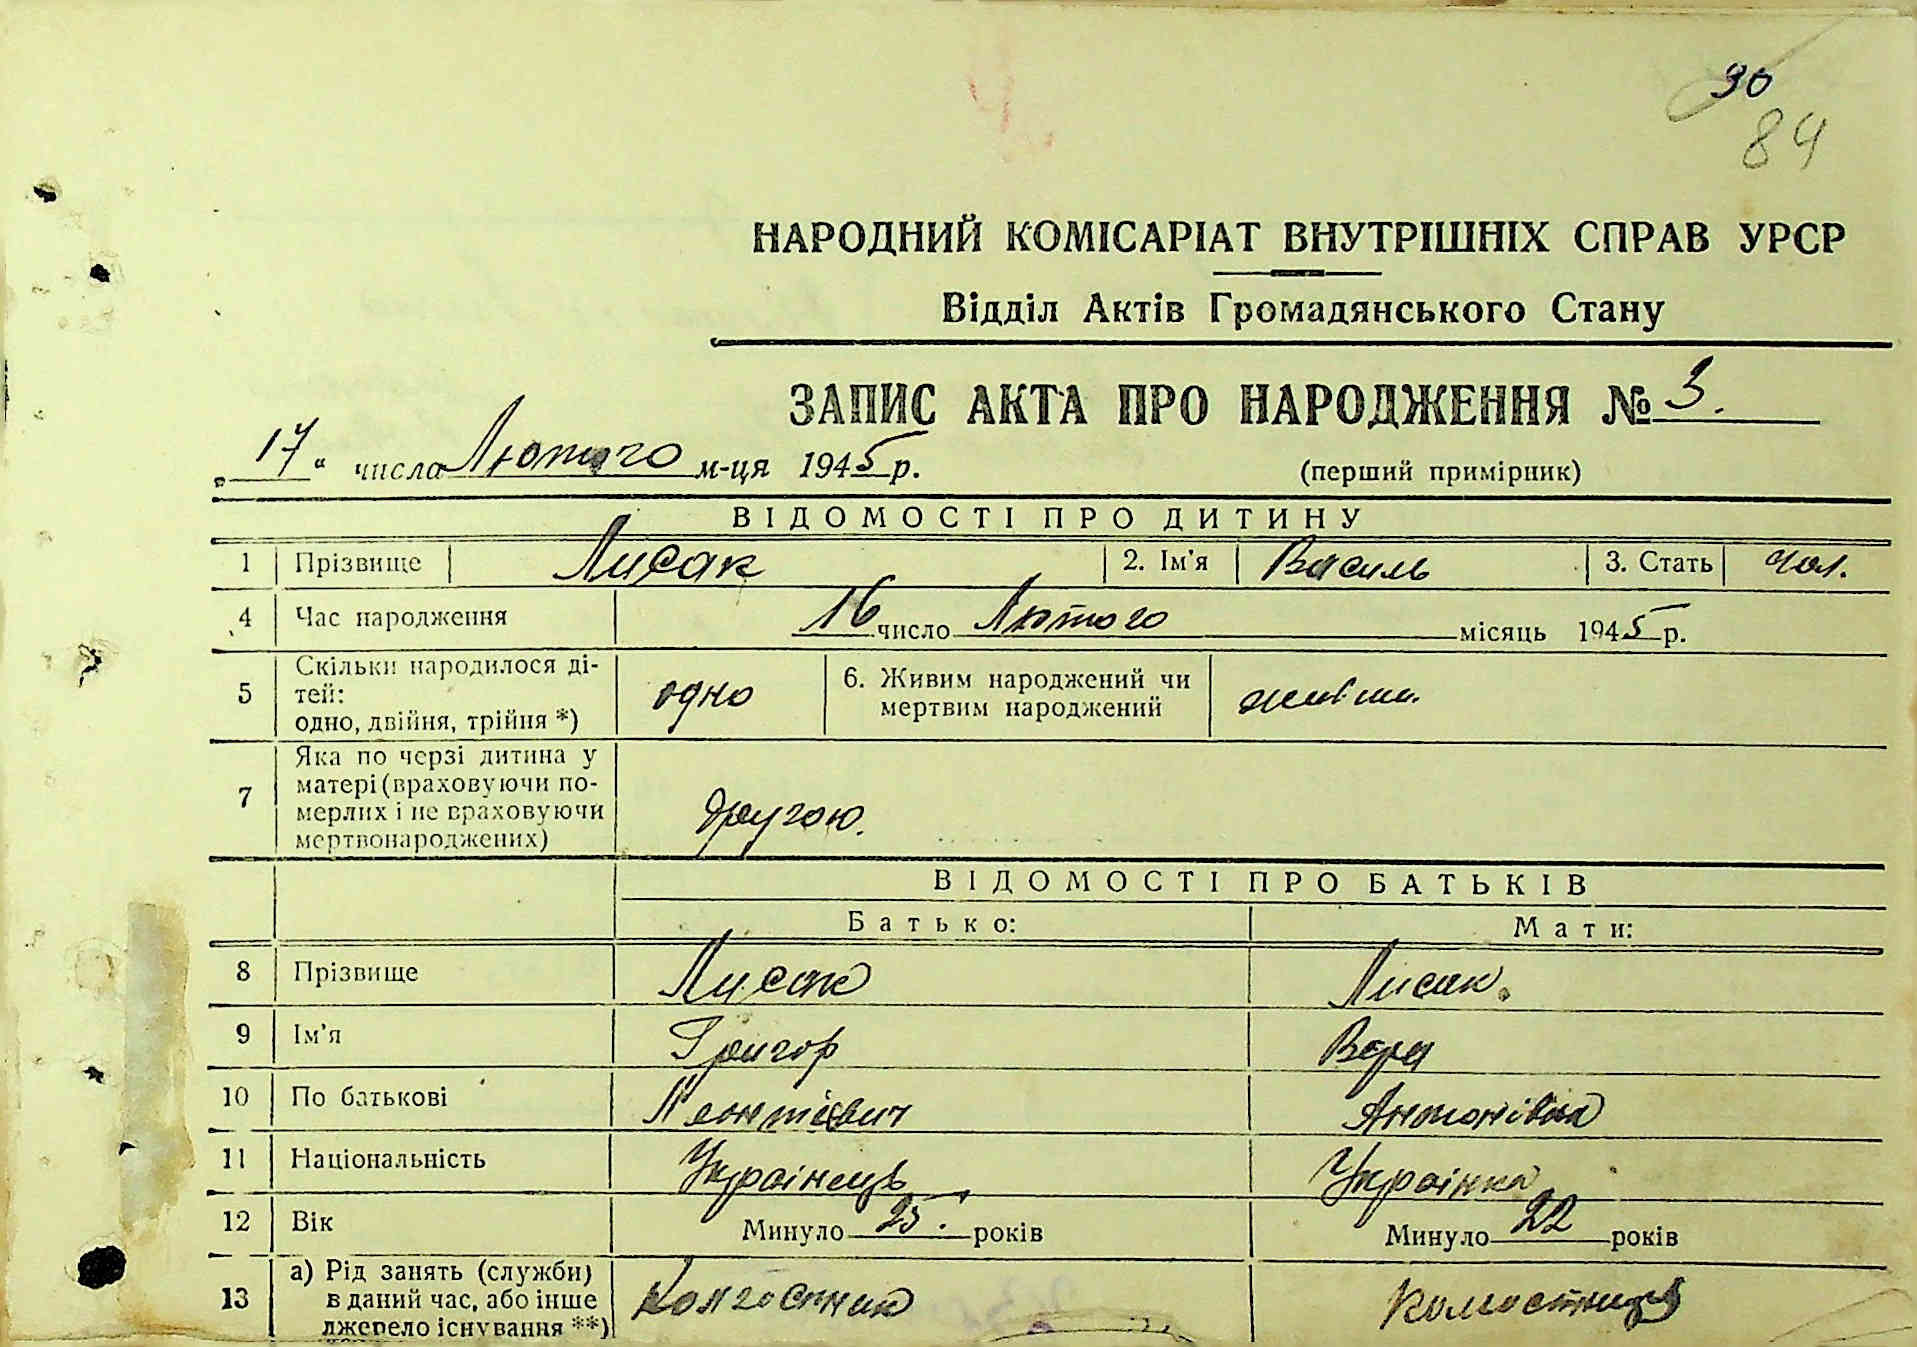 30
84
НАРОДНИЙ КОМІСАРІАТ ВНУТРІШНІХ СПРАВ УРСР
Відділ Актів Громадянського Стану
ЗАПИС АКТА ПРО НАРОДЖЕННЯ № 3.
„17“ числа Лютого м-ця 1945 р. (перший примірник)
ВІДОМОСТІ ПРО ДИТИНУ
1 Прізвище Лисак 2. Ім'я Василь 3. Стать чол.
4 Час народження 16 число Лютого місяць 1945 р.
5 Скільки народилося ді-
тей:
одно, двійня, трійня *) одно 6. Живим народжений чи
мертвим народжений
7 Яка по черзі дитина у
матері (враховуючи по-
мерлих і не враховуючи
мертвонароджених) другою.
ВІДОМОСТІ ПРО БАТЬКІВ
Батько: Мати:
8 Прізвище Лисак Лисак.
9 Ім'я Григор Вера
10 По батькові Леонтієвич Антонівна
11 Національність Украінець Украінка
12 Вік Минуло 25. років Минуло 22 років
13 а) Рід занять (служби)
в даний час, або інше
джерело існування **) Колгоспник Колгостниця